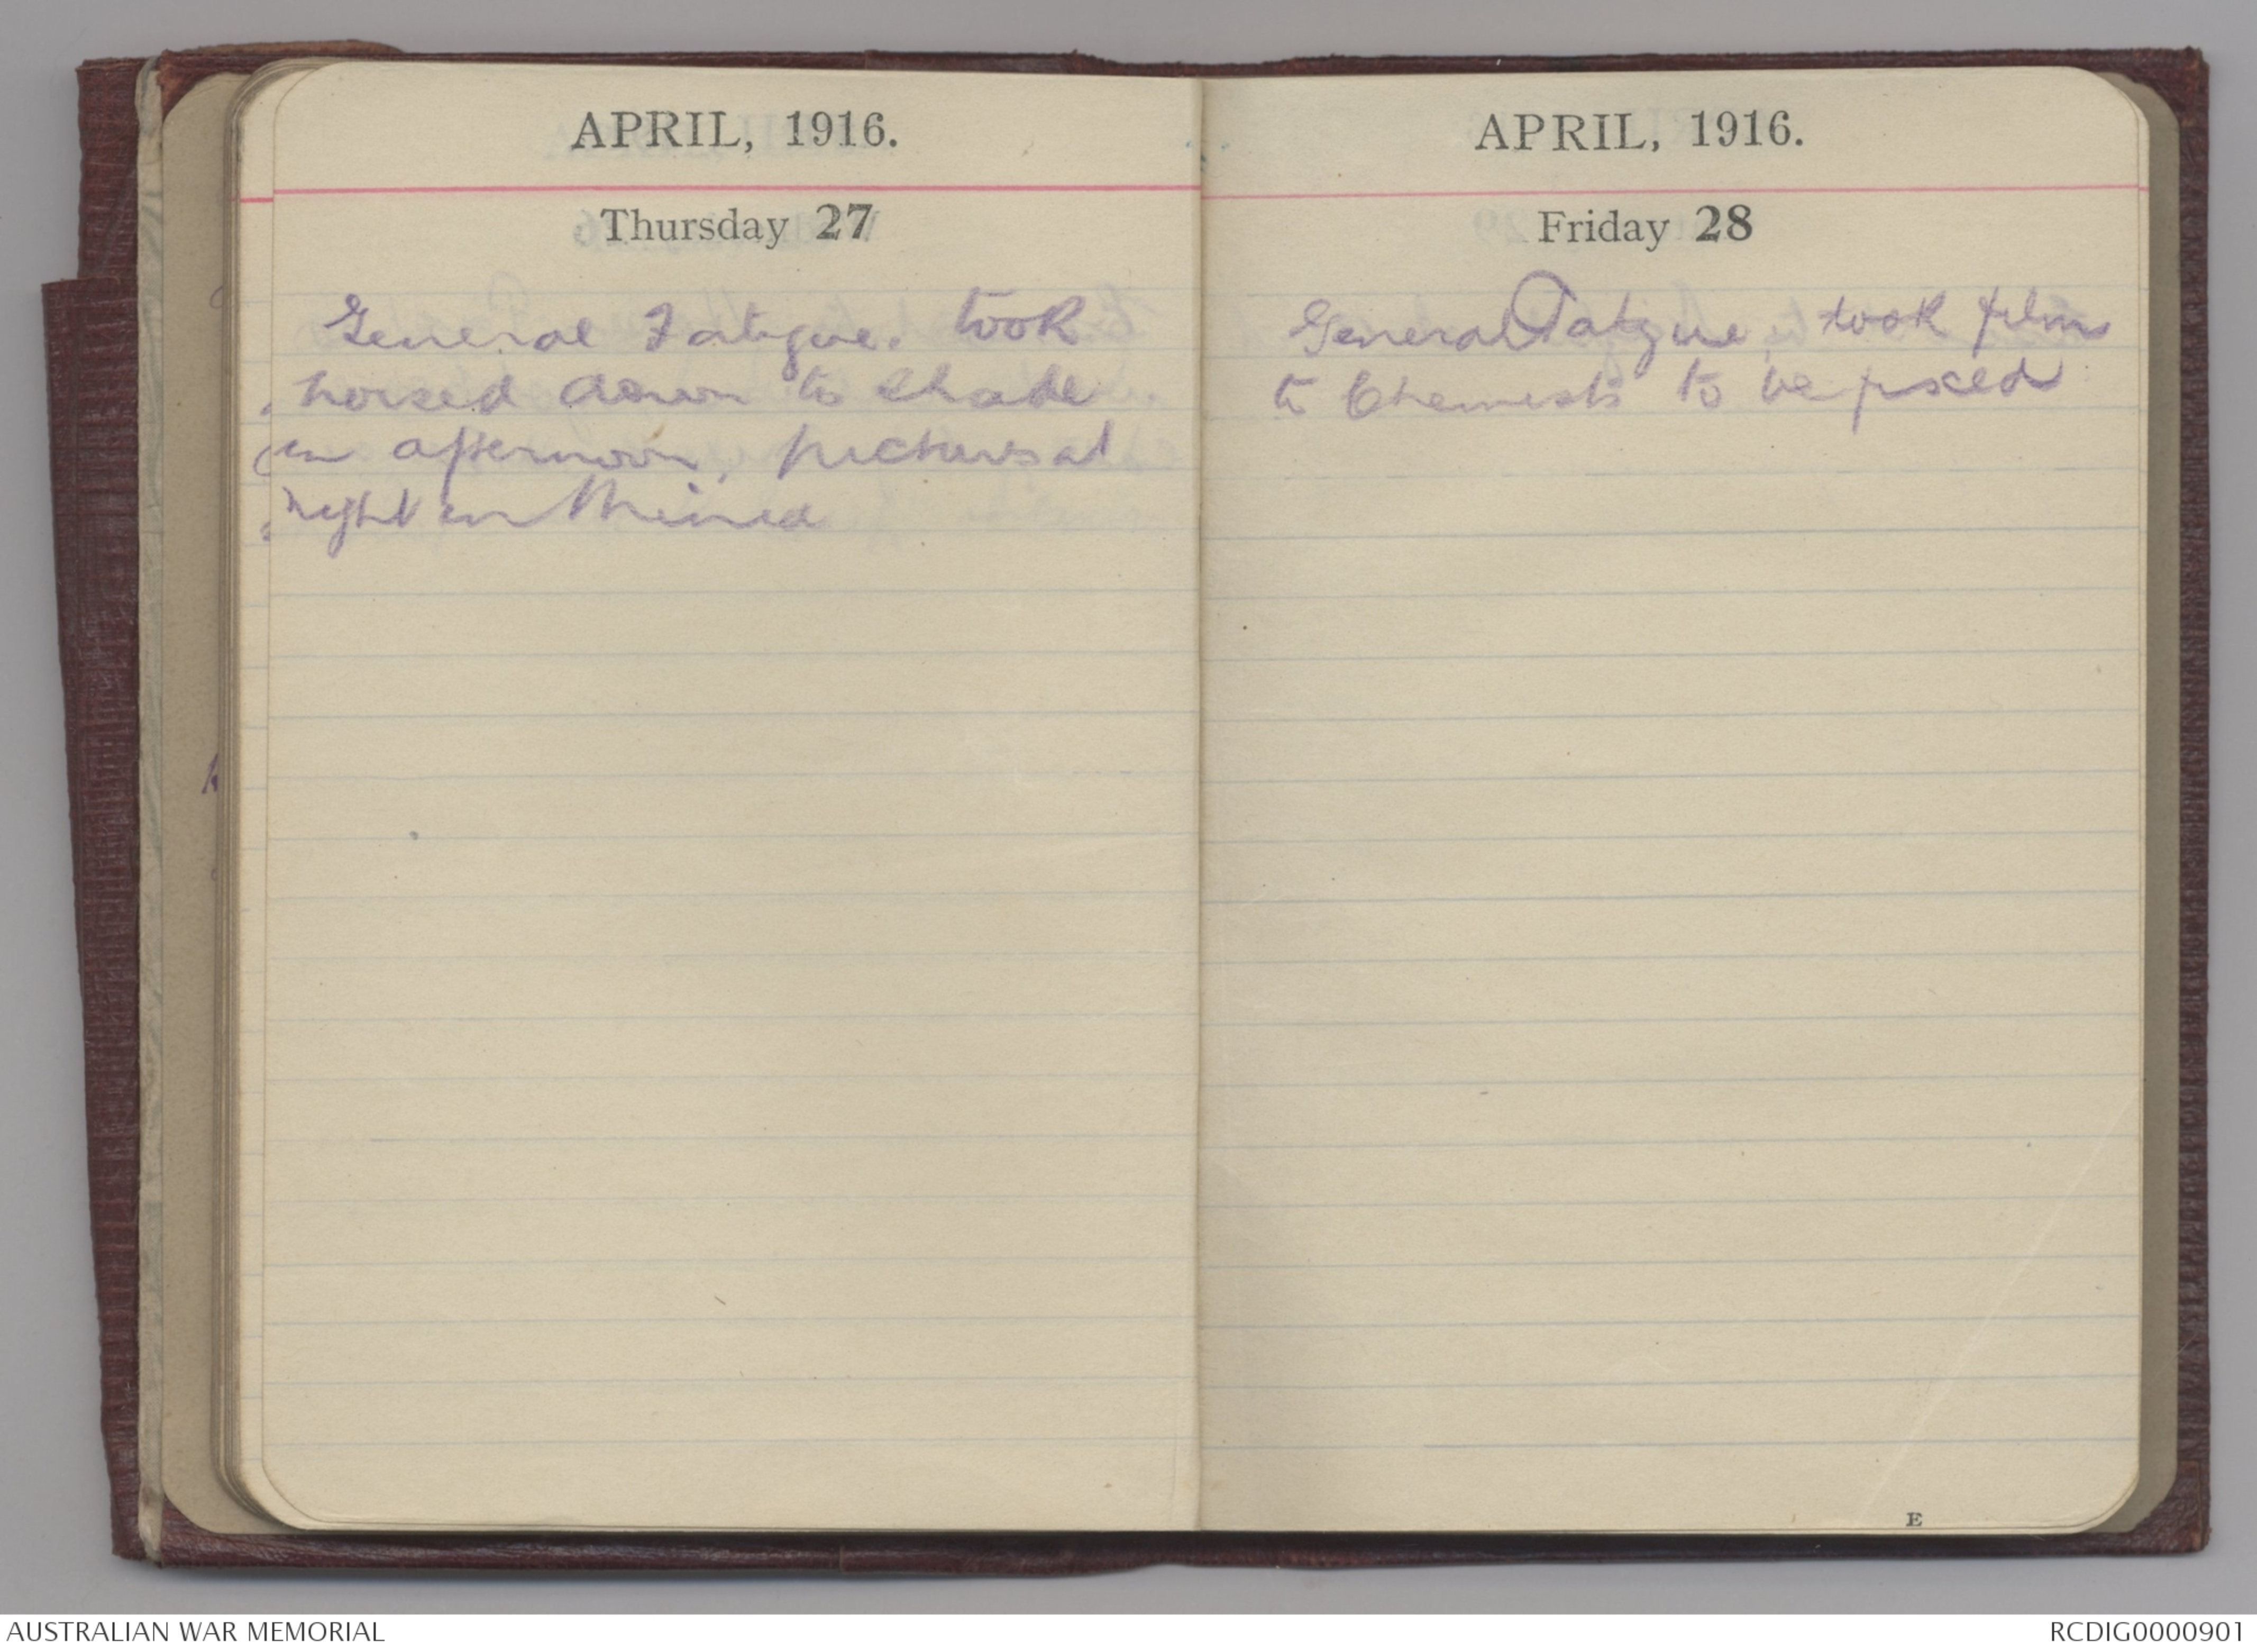 APRIL, 1916.
Thursday 27
General Fatigue. took
horsed down to shade
in afternoon, pictures at
night in
APRIL, 1916.
Friday 28
General Fatigue, took films
to Chemists to be fixed
E
AUSTRALIAN WAR MEMORIAL
RCDIG0000901